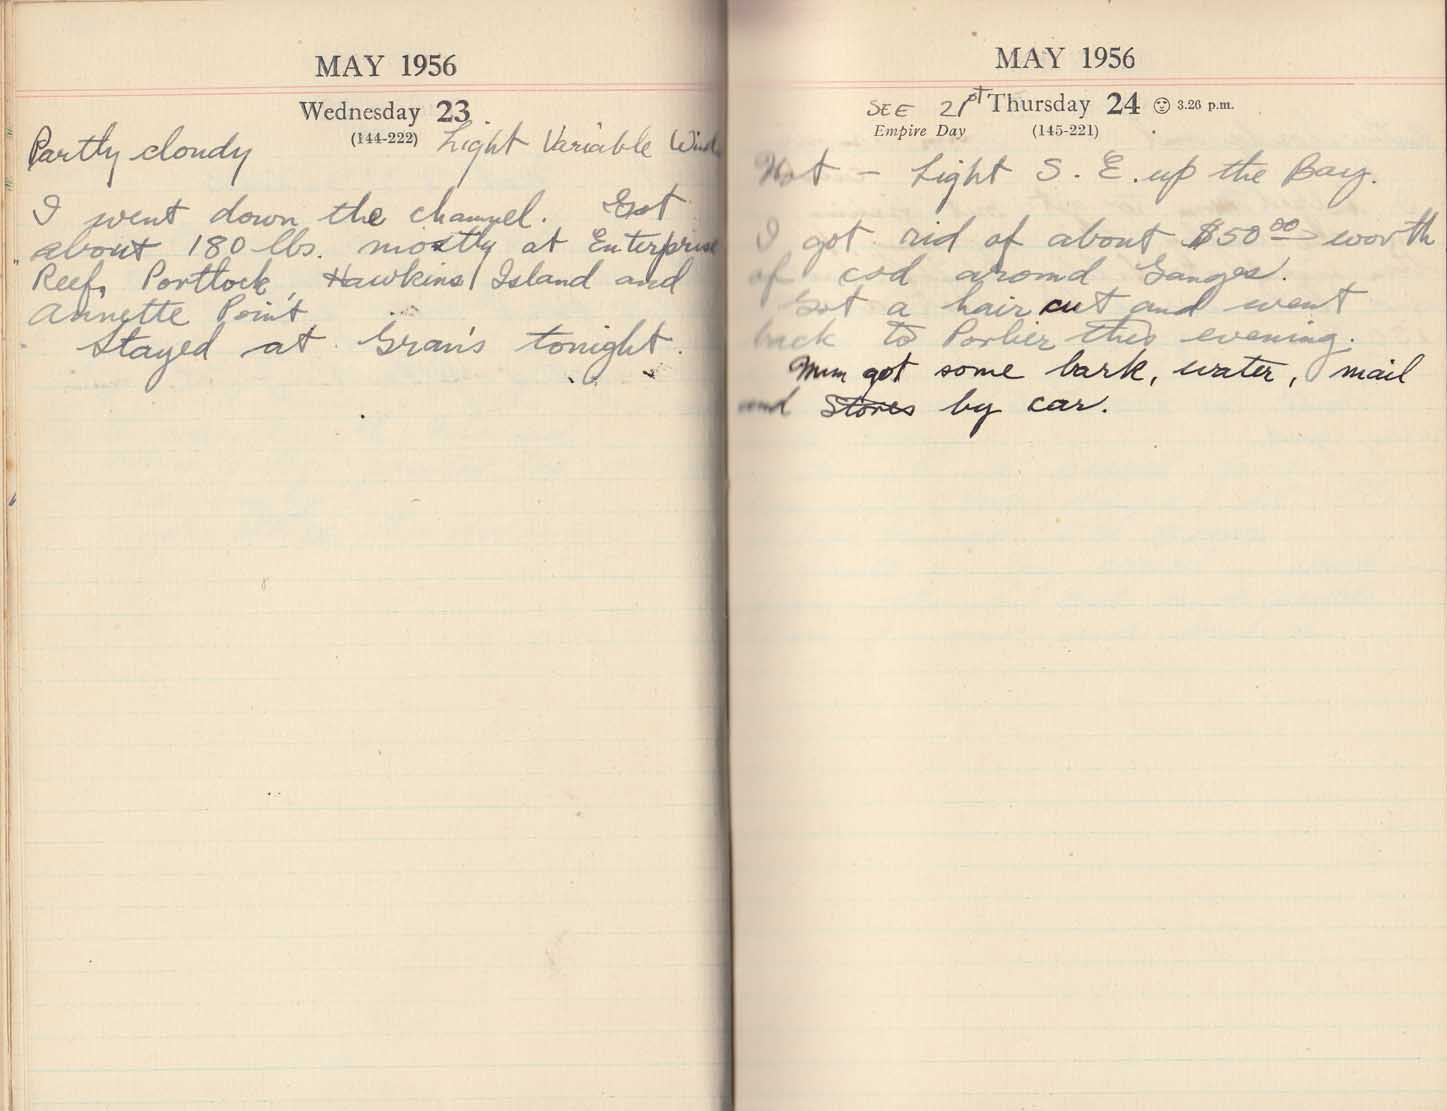 MAY 1956
Wednesday 23
(144-222)
Partly cloudy Light Variable Winds
I went down the channel. Got
about 180 lbs. mostly at Enterprise
Reef, Portlock, Hawkins Island and
Annette Point
Stayed at Gran's tonight.
MAY 1956
SEE 21st Thursday 24 3.26 p.m.
Empire Day (145-221)
Hot - Light S. E. up the Bay.
I got rid of about $50.00 worth
of cod around Ganges.
Got a hair cut and went
back to Porlier this evening.
Mum got some bark, water, mail
and stores by car.